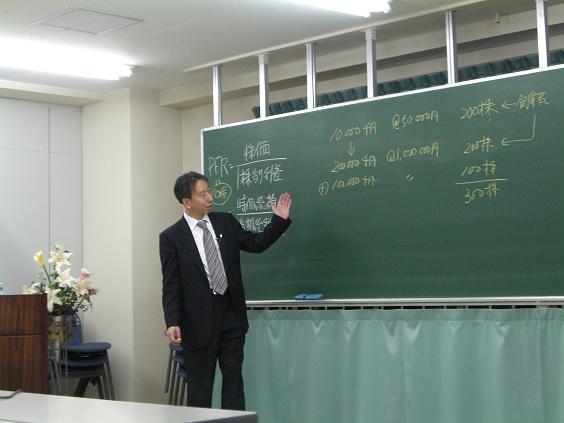 PER = 株価
1株当利益
10倍
時価総額
10.000千円 @50.000円 200株 ← 創業者
↓
200.000千円 @1.000.000円 200株 ←
⊕ 100.000千円 〃 100株
350株